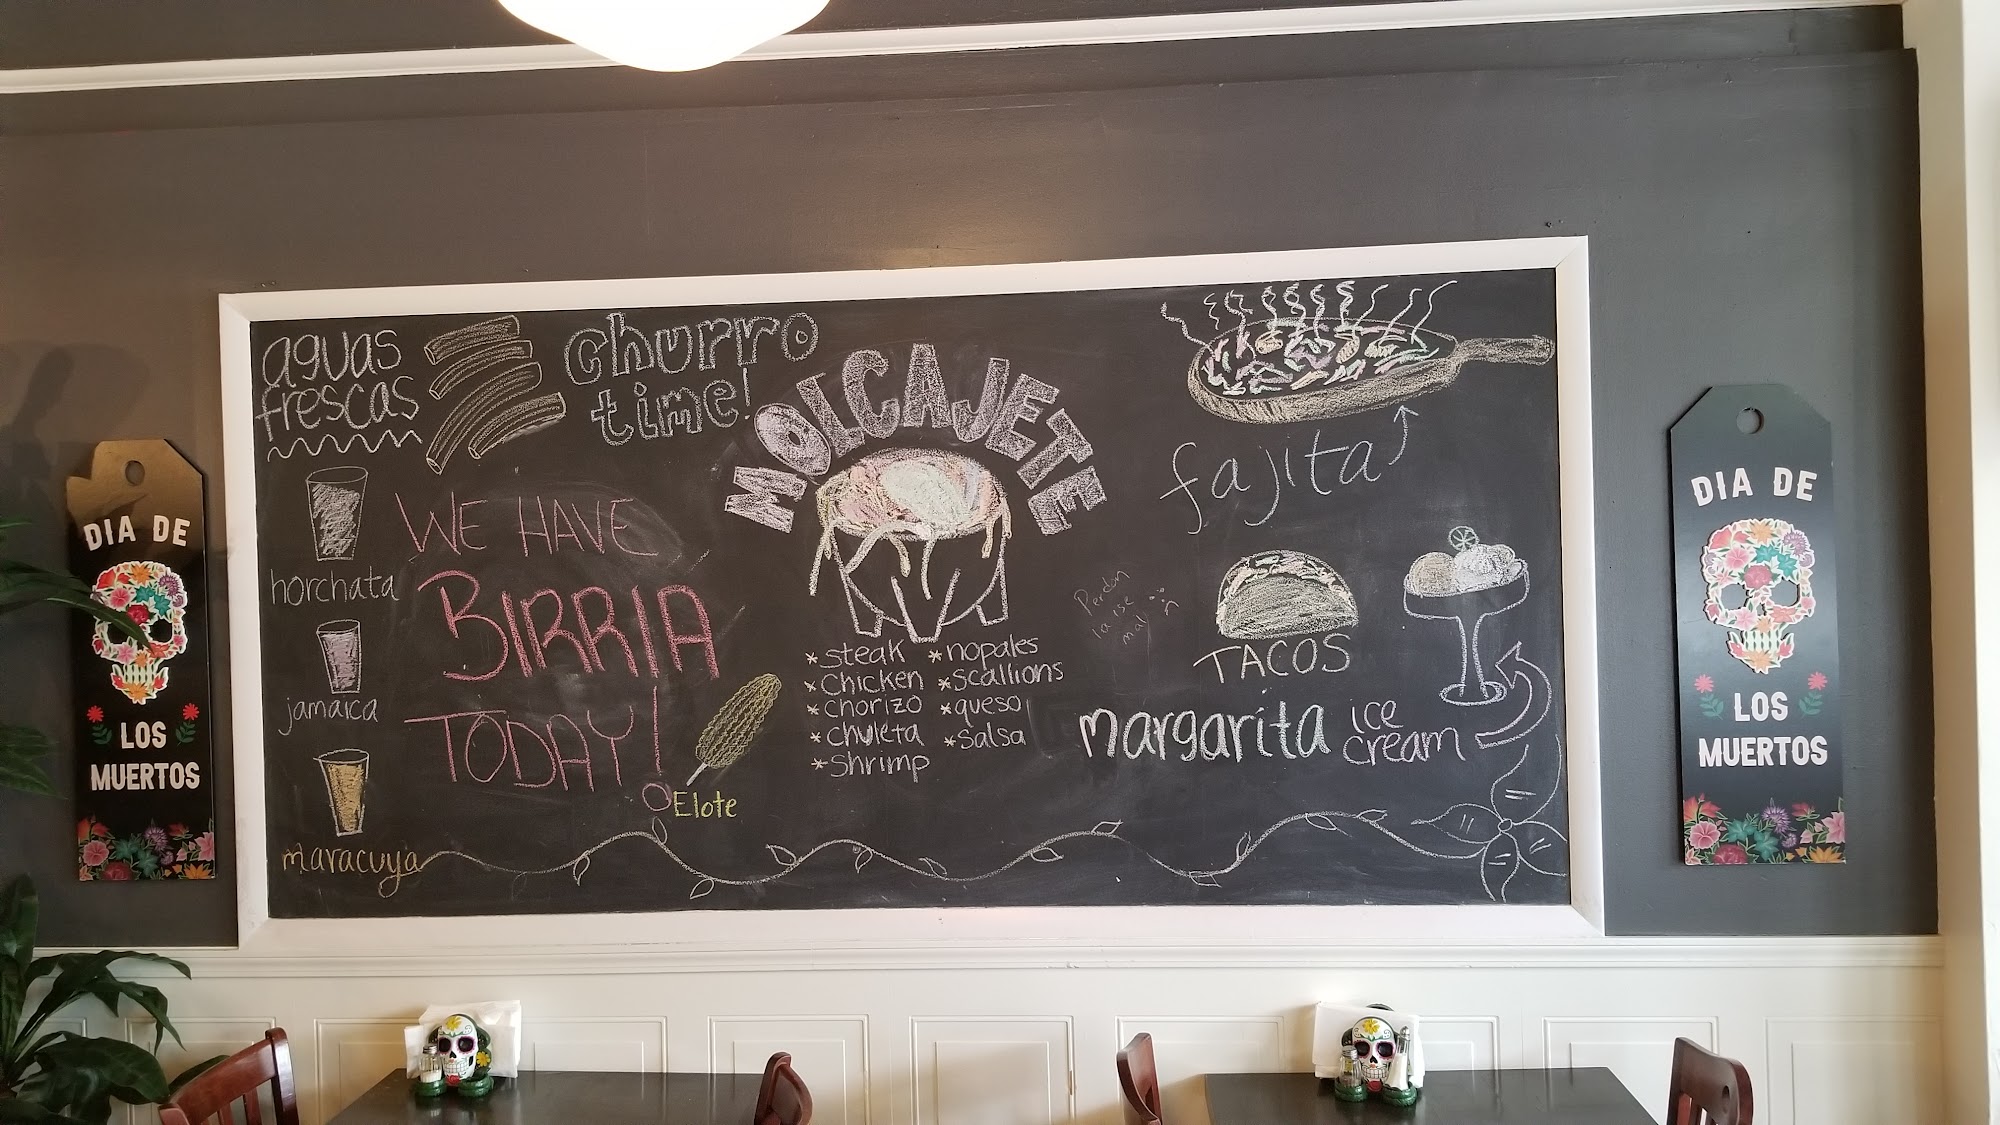 aguas
frescas
horchata
jamaica
maracuya
churro
time!
WE HAVE
BIRRIA
TODAY!
Elote
MOLCAJETE
*steak
*chicken
*chorizo
*chuleta
*shrimp
*nopales
*scallions
*queso
*salsa
fajita
Perdon
la rse
mal
TACOS
margarita ice
cream
DIA DE
LOS
MUERTOS
DIA DE
LOS
MUERTOS